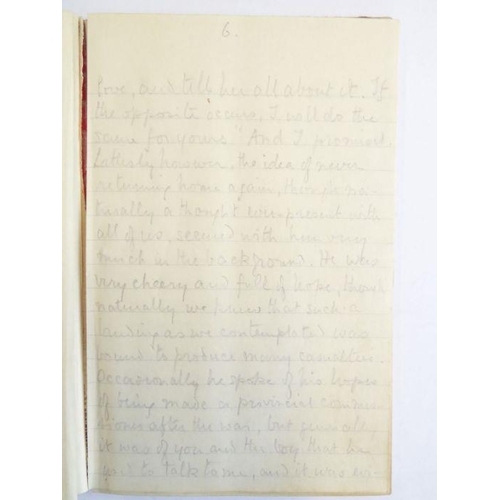 6.
love, and tell her all about it. If
the opposite occurs, I will do the
same for yours." And I promised.
Latterly however, the idea of never
returning home again, though na-
turally a thought ever present with
all of us, seemed with him very
much in the background. He was
very cheery and full of hope, though
naturally we knew that such a
landing as we contemplated was
bound to produce many casualties.
Occasionally he spoke of his hopes
of being made a provincial commis-
sioner after the war, but generally
it was of you and the boy that he
used to talk to me, and it was evi-